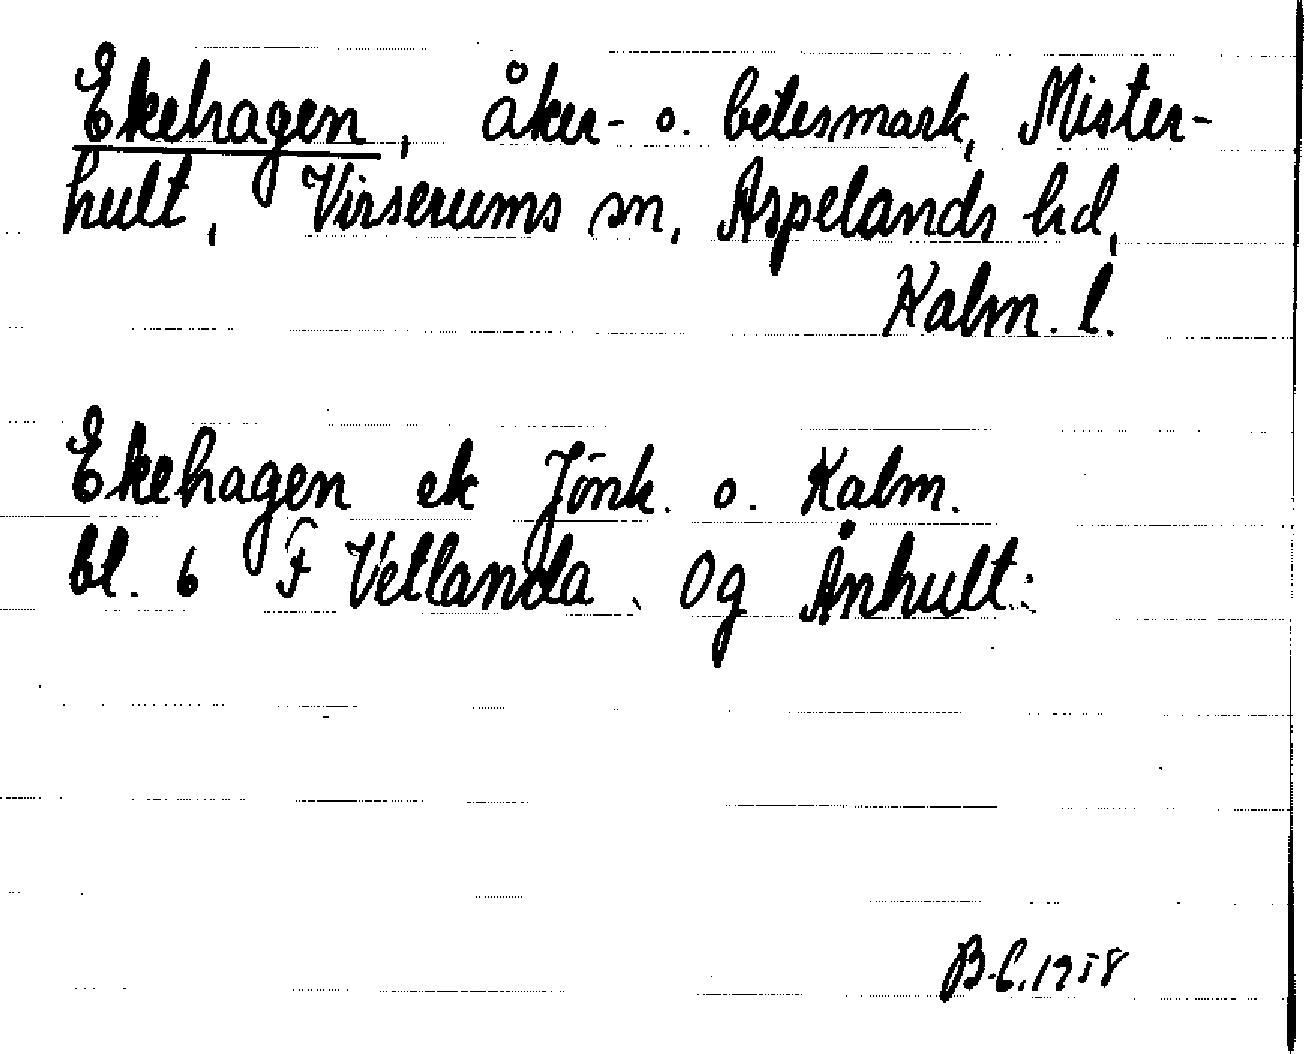 Ekehagen, åker- o. betesmark, Mister-
hult, Virserums sn, Aspelands hd,
Kalm. l.
Ekehagen ek Jönk. o. Kalm.
bl. 6 F Vetlanda. Og Ånhult.
B-C. 1958